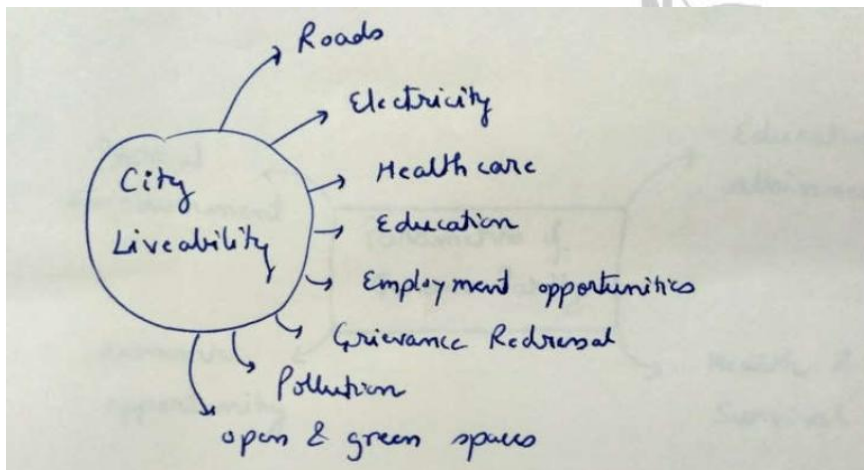 Roads
Electricity
City
Liveability
Healthcare
Education
Employment opportunities
Grievance Redressal
Pollution
open & green spaces